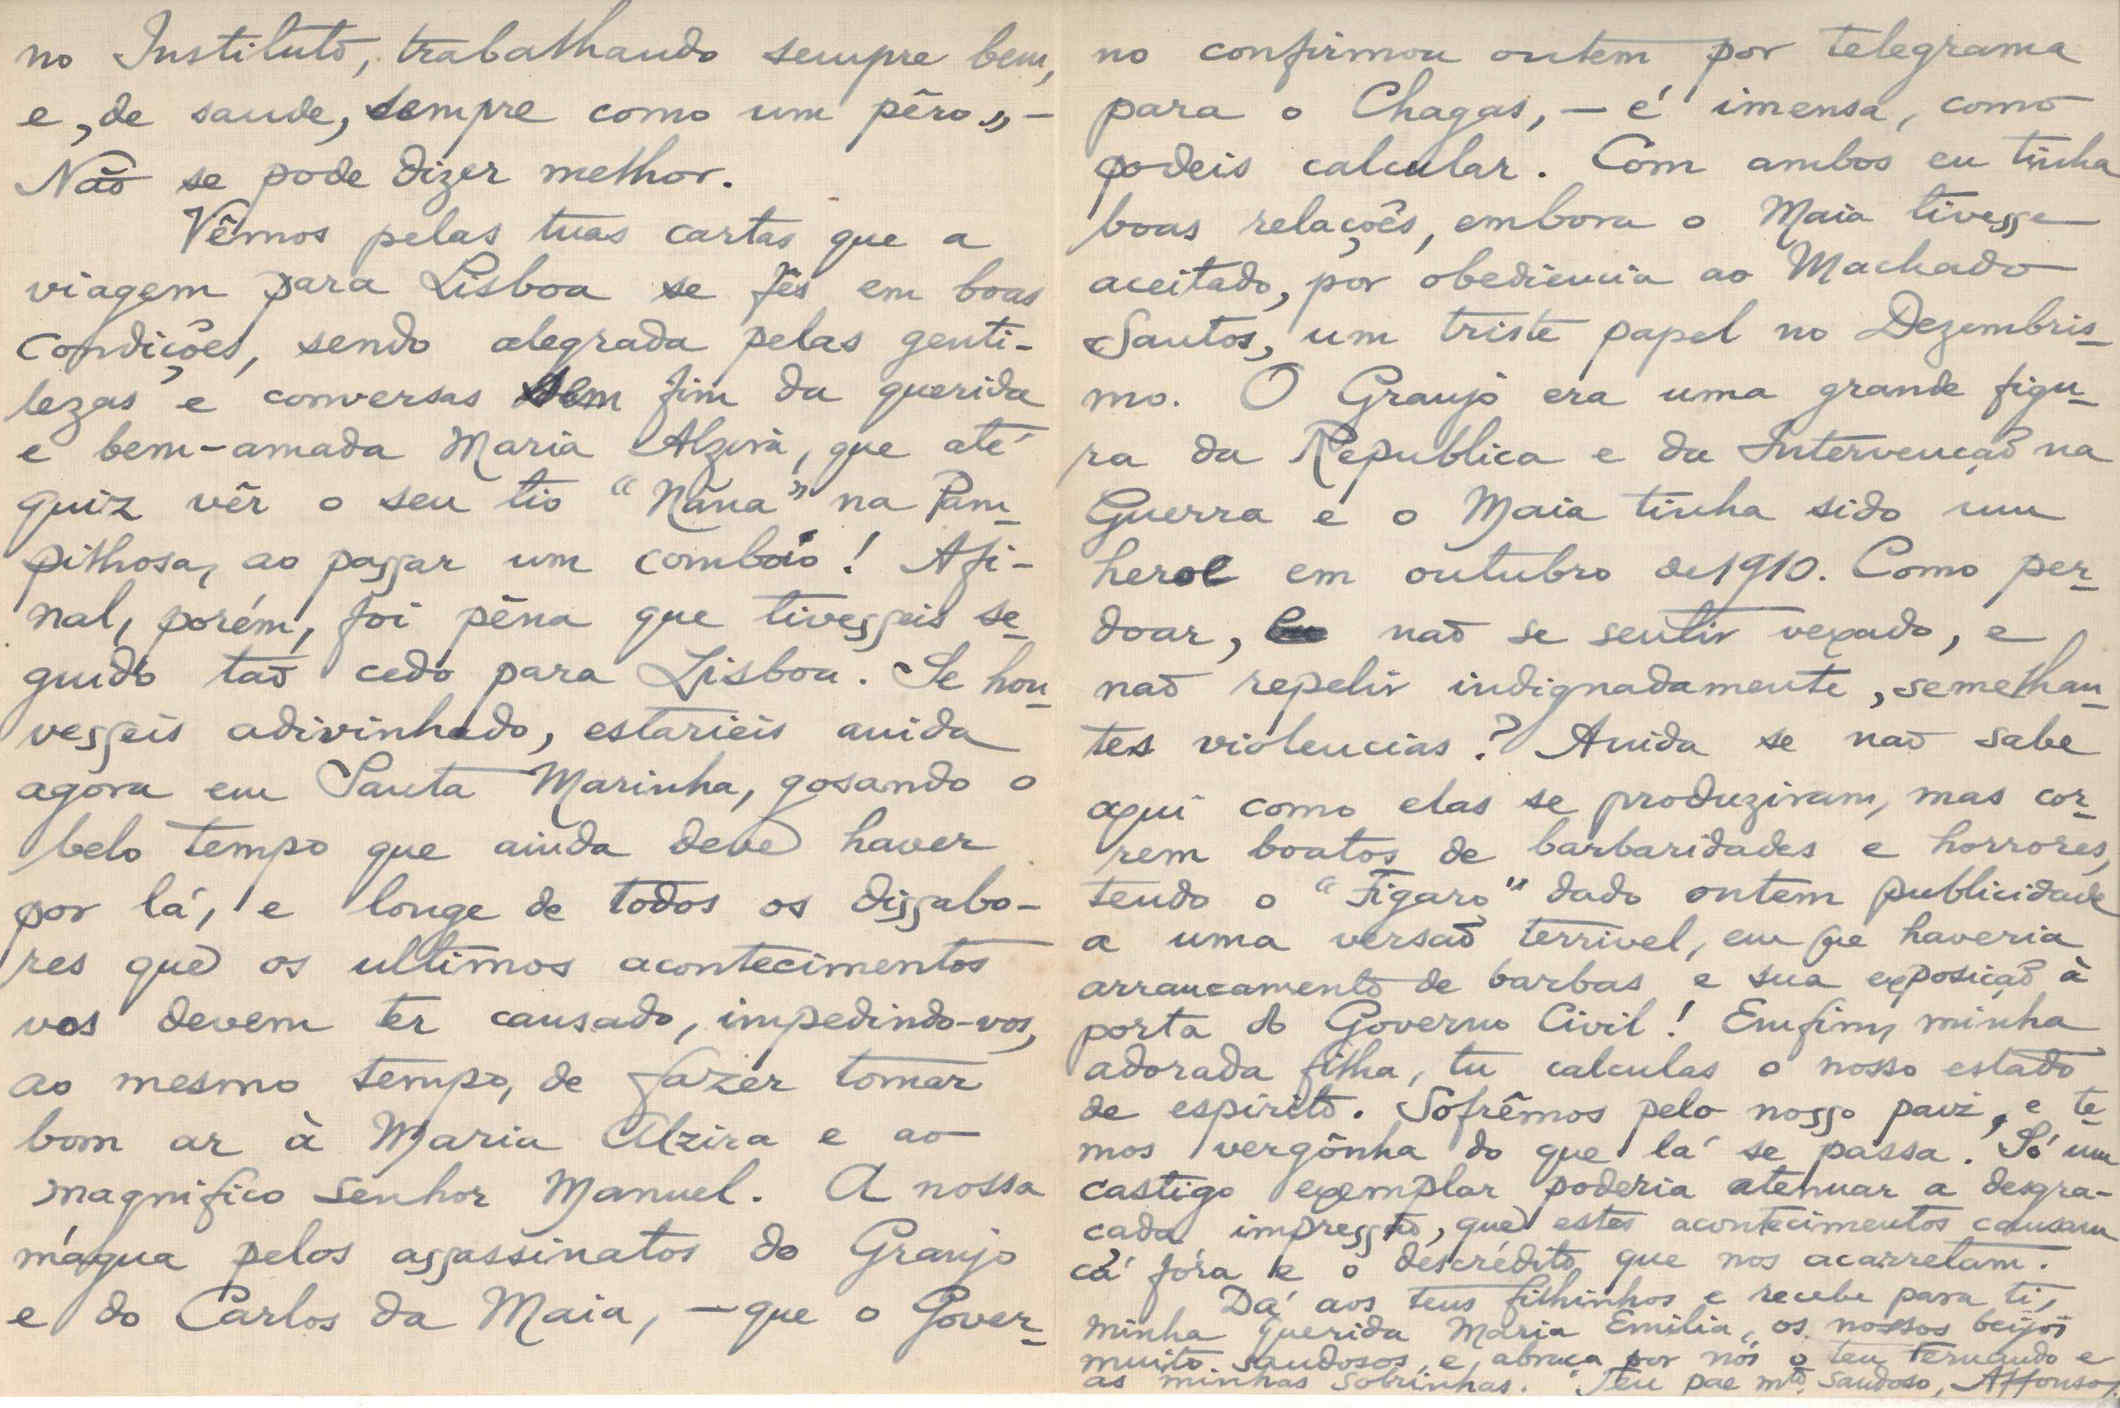 no Instituto, trabalhando sempre bem,
e, de saude, sempre como um pêro,, —
Não se pode dizer melhor.
Vêmos pelas tuas cartas que a
viagem para Lisboa se fês em boas
condições, sendo alegrada pelas genti-
lezas e conversas sem fim da querida
e bem-amada Maria Alzira, que até
quiz vêr o seu tio "Nana" na Pam-
pilhosa, ao passar um comboio! Afi-
nal, porém, foi pêna que tivesseis se-
guido tão cedo para Lisboa. Se hou-
vesseis adivinhado, estarieis ainda
agora em Santa Marinha, gosando o
belo tempo que ainda deve haver
por lá, e longe de todos os dissabo-
res que os ultimos acontecimentos
vos devem ter causado, impedindo-vos,
ao mesmo tempo, de fazer tomar
bom ar à Maria Alzira e ao
magnifico Senhor Manuel. A nossa
mágua pelos assassinatos do Granjo
e do Carlos da Maia, — que o Gover-
no confirmou ontem por telegrama
para o Chagas, — é imensa, como
podeis calcular. Com ambos eu tinha
boas relações, embora o Maia tivesse
aceitado, por obediencia ao Machado
Santos, um triste papel no Dezembris-
mo. O Granjo era uma grande figu-
ra da Republica e da Intervenção na
Guerra e o Maia tinha sido um
heroe em outubro de 1910. Como per-
doar, não se sentir vexado, e
não repelir indignadamente, semelhan-
tes violencias? Ainda se não sabe
aqui como elas se produziram, mas cor-
rem boatos de barbaridades e horrores,
tendo o "Figaro" dado ontem publicidade
a uma versão terrivel, em que haveria
arrancamento de barbas e sua exposição à
porta do Governo Civil! Emfim, minha
adorada filha, tu calculas o nosso estado
de espirito. Sofrêmos pelo nosso paiz, e te-
mos vergônha do que lá se passa. Só um
castigo exemplar poderia atenuar a desgra-
çada impressão, que estes acontecimentos causam
cá fóra e o descrédito que nos acarretam.
Dá aos teus filhinhos e recebe para ti,
minha querida Maria Emilia, os nossos beijos
muito saudosos, e abraça por nós o teu Fernando e
as minhas sobrinhas. Teu pae mto. saudoso, Affonso.